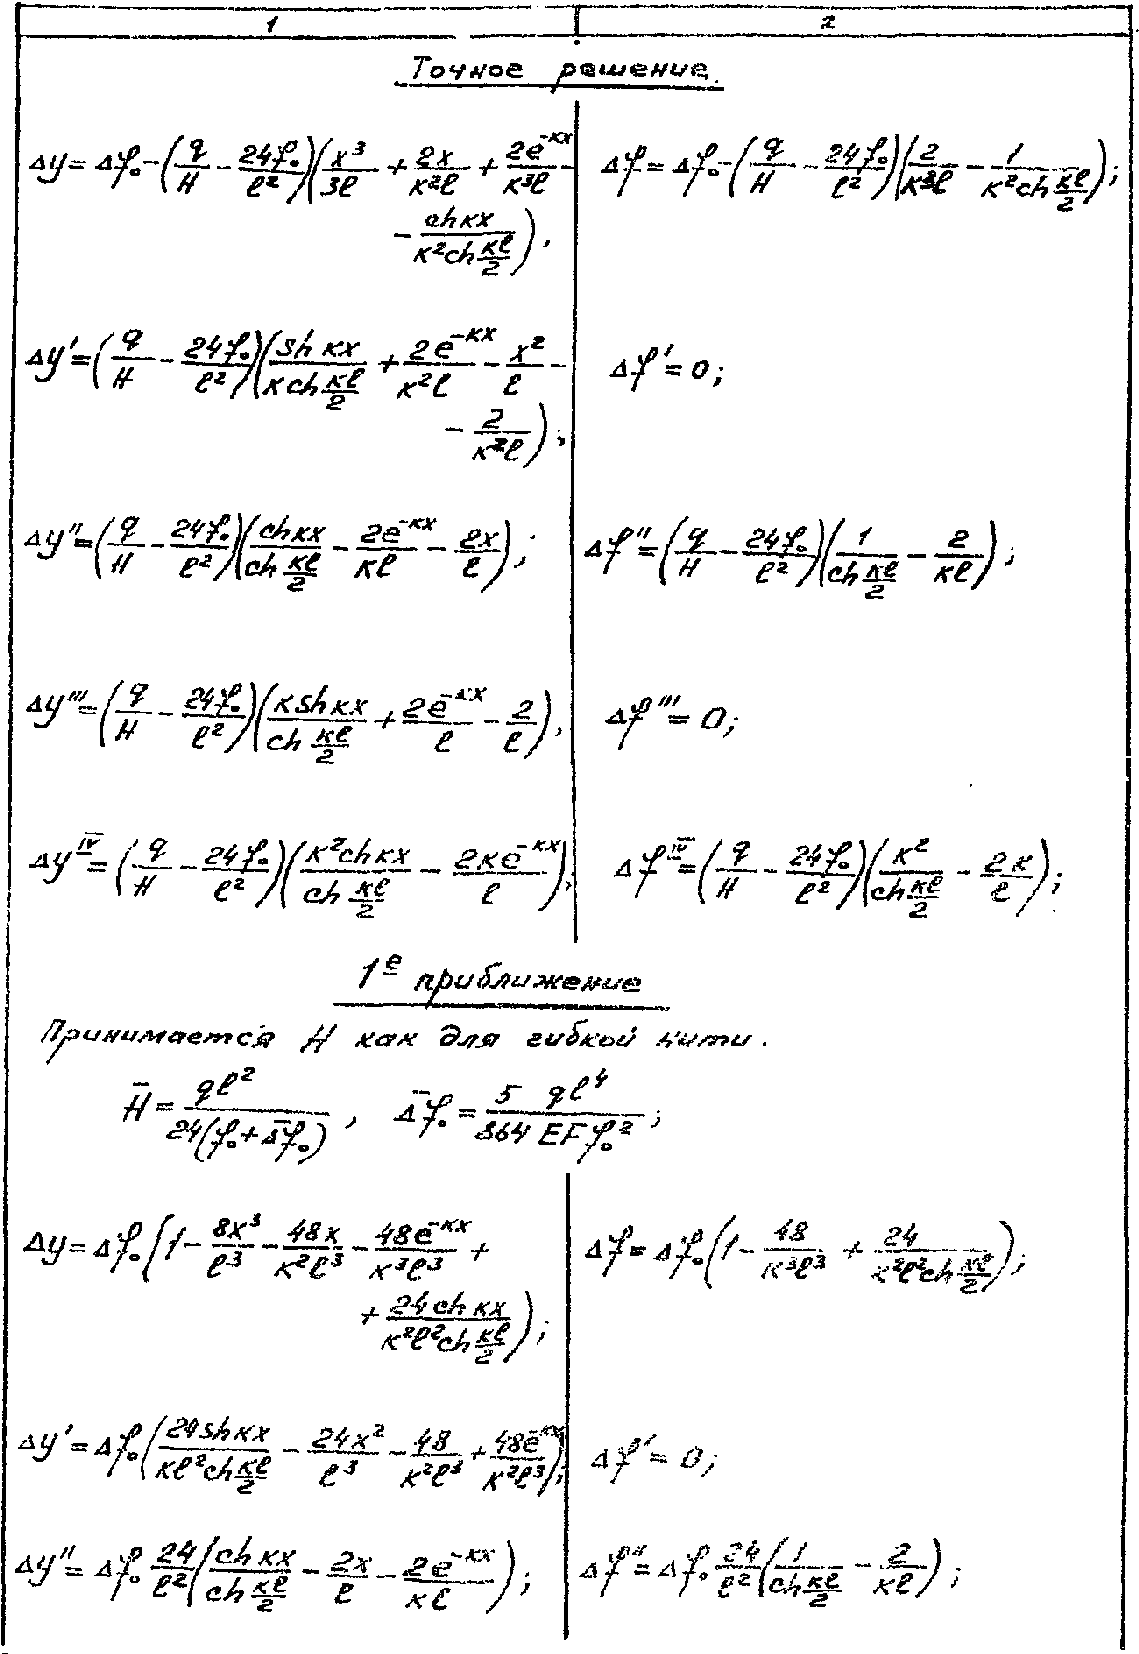 1 2
Точное решение.
Δy = Δf₀ − (q/H − 24f₀/l²)(x³/3l + 2x/к²l + 2e^{−кx}/к³l −
− ch кx/(к² ch кl/2)),
Δf = Δf₀ − (q/H − 24f₀/l²)(2/к³l − 1/(к² ch кl/2));
Δy' = (q/H − 24f₀/l²)(sh кx/(к ch кl/2) + 2e^{−кx}/к²l − x²/l −
− 2/к²l);
Δf' = 0;
Δy'' = (q/H − 24f₀/l²)(ch кx/(ch кl/2) − 2e^{−кx}/кl − 2x/l);
Δf'' = (q/H − 24f₀/l²)(1/(ch кl/2) − 2/кl);
Δy''' = (q/H − 24f₀/l²)(к sh кx/(ch кl/2) + 2e^{−кx}/l − 2/l),
Δf''' = 0;
Δy^{IV} = (q/H − 24f₀/l²)(к² ch кx/(ch кl/2) − 2кe^{−кx}/l),
Δf^{IV} = (q/H − 24f₀/l²)(к²/(ch кl/2) − 2к/l);
1е приближение
Принимается H как для гибкой нити.
H̄ = ql²/(24(f₀ + Δ̄f₀)), Δ̄f₀ = 5 ql⁴/(864 EFf₀²);
Δy = Δf₀(1 − 8x³/l³ − 48x/к²l³ − 48e^{−кx}/к³l³ +
+ 24 ch кx/(к²l² ch кl/2));
Δf = Δf₀(1 − 48/к³l³ + 24/(к²l² ch кl/2));
Δy' = Δf₀(24 sh кx/(кl² ch кl/2) − 24x²/l³ − 48/к²l³ + 48e^{−кx}/к²l³);
Δf' = 0;
Δy'' = Δf₀ 24/l² (ch кx/(ch кl/2) − 2x/l − 2e^{−кx}/кl);
Δf'' = Δf₀ 24/l² (1/(ch кl/2) − 2/кl);